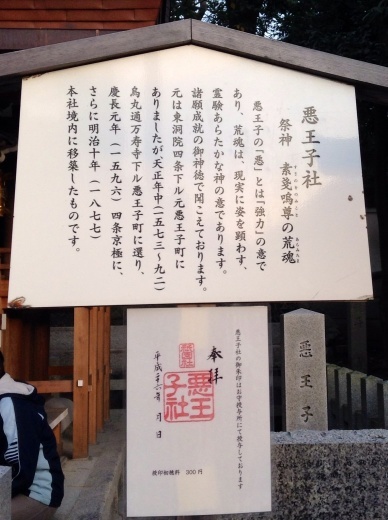 悪王子社
祭神　素戔嗚尊の荒魂
すさのをのみこと
あらみたま
悪王子の「悪」とは「強力」の意で
あり、荒魂は、現実に姿を顕わす、
霊験あらたかな神の意であります。
諸願成就の御神徳で聞こえております。
元は東洞院四条下ル元悪王子町に
ありましたが、天正年中（一五七三～九二）
烏丸通万寿寺下ル悪王子町に遷り、
慶長元年（一五九六）四条京極に、
さらに明治十年（一八七七）
本社境内に移築したものです。
悪王子社の御朱印はお守授与所にて授与しております
奉拝
悪王子社
平成二十六年　月　日
授印初穂料　300円
悪王子